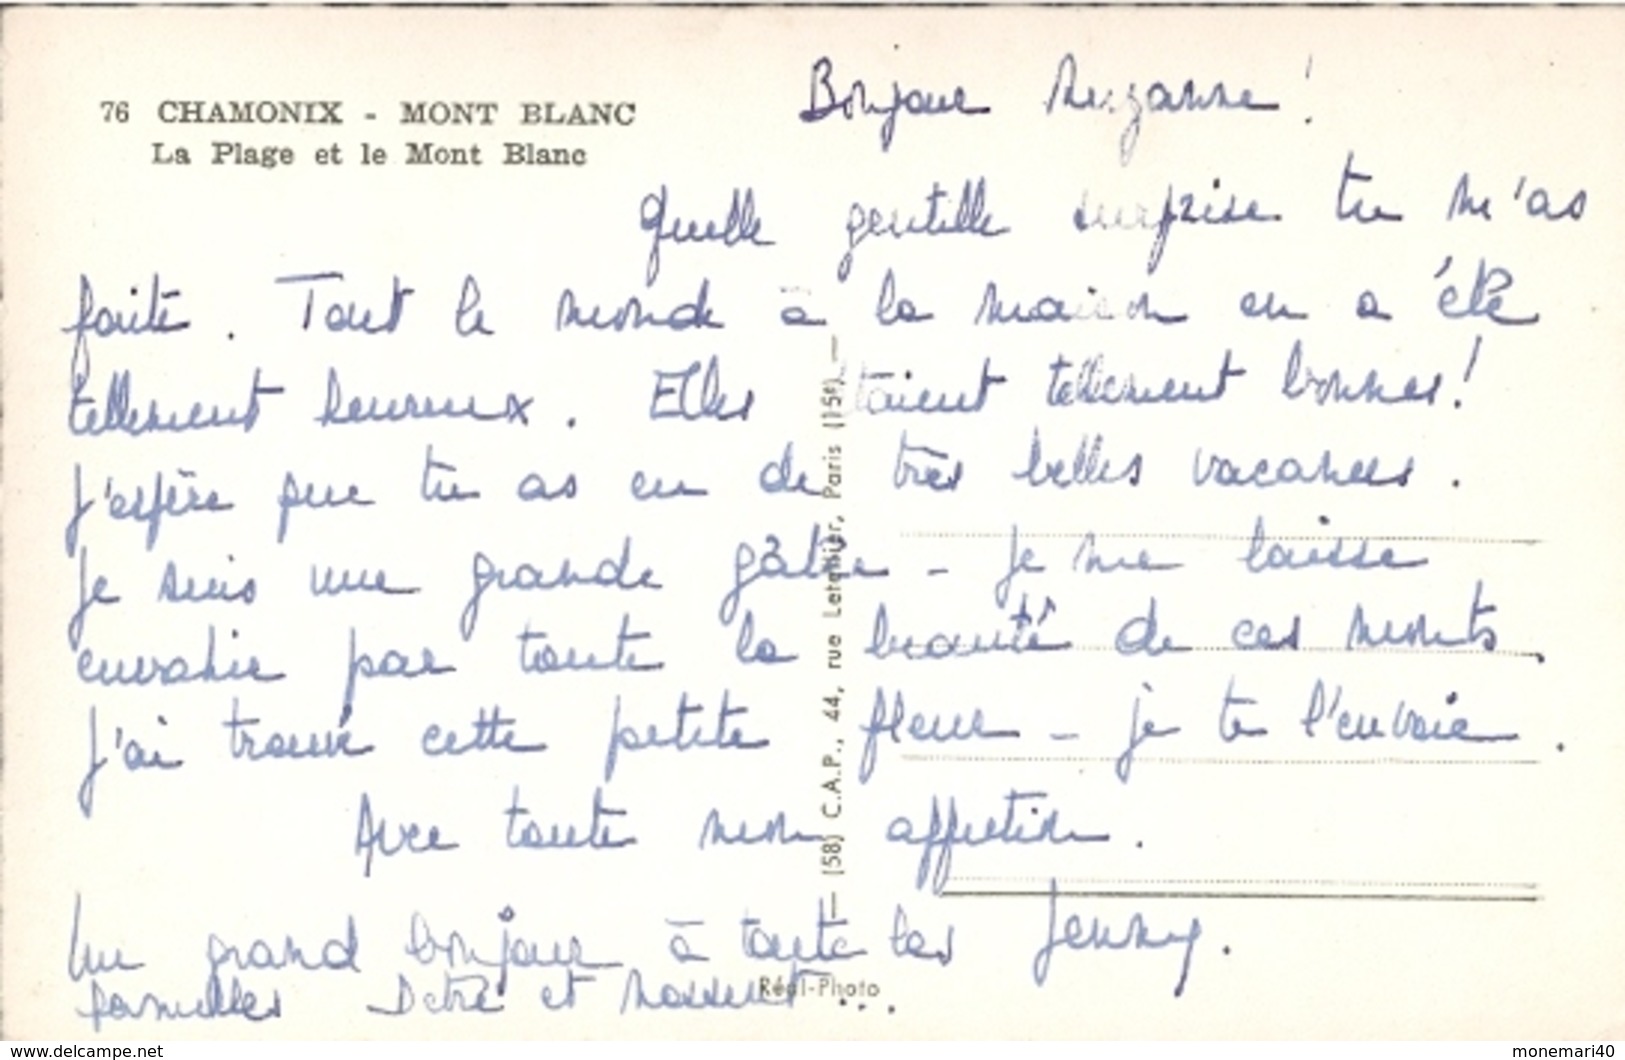 76 CHAMONIX - MONT BLANC
La Plage et le Mont Blanc
Bonjour Suzanne !
Quelle gentille surprise tu m'as
faite. Tout le monde à la maison en a été
tellement heureux. Elles étaient tellement bonnes !
J'espère que tu as eu de très belles vacances.
Je suis une grande gâtée - je me laisse
envahir par toute la beauté de ces monts.
J'ai trouvé cette petite fleur - je te l'envoie.
Avec toute mon affection.
Jenny.
Un grand bonjour à toute les
familles et
— (58) C.A.P., 44, rue Letellier, Paris (15e) —
Réal-Photo
www.delcampe.net
monemari40